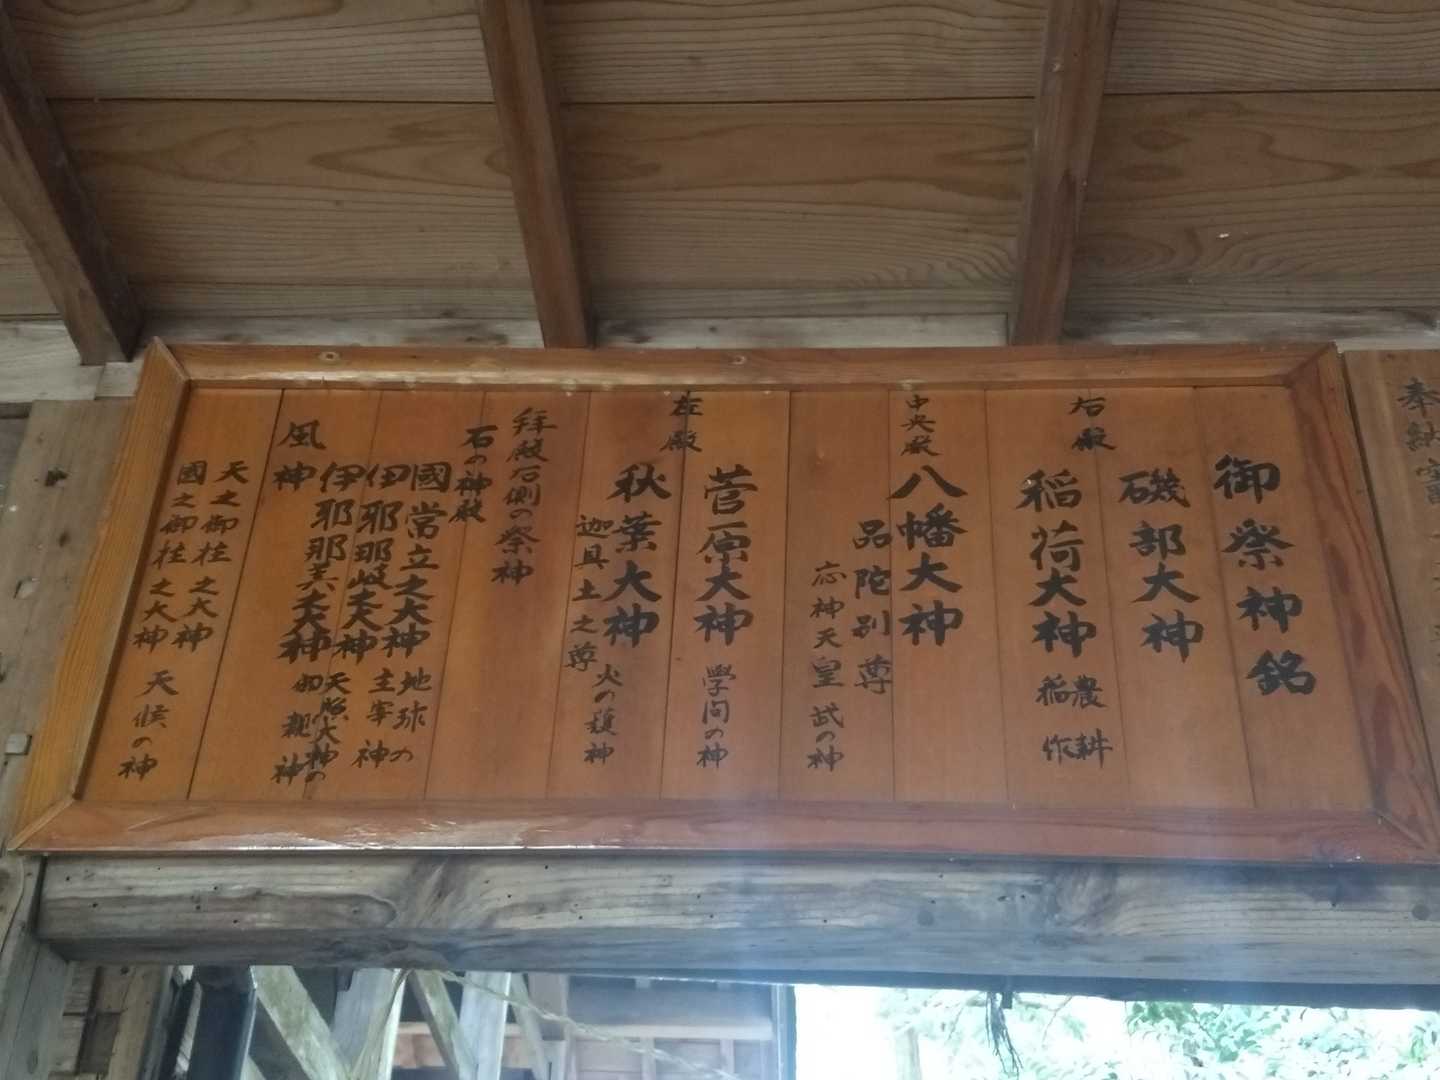 奉納
御祭神銘
右殿
磯部大神
稲荷大神
農耕
稲作
中央殿
八幡大神
品陀別尊
応神天皇 武の神
左殿
菅原大神 學问の神
秋葉大神 火の護神
迦具土之尊
拝殿右側の祭神
石の神殿
國常立之大神 地球の
伊耶那岐大神 主宰神
伊耶那美大神 天照大神の
御親神
風神
天之御柱之大神
國之御柱之大神 天候の神